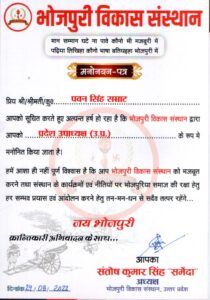 भोजपुरी विकास संस्थान
मान सम्मान घटे ना पावे कौनो भी मजबूरी में
पढ़िया लिखिहा कौनो भाषा बतियइहा भोजपुरी में
मनोनयन-पत्र
प्रिय श्री/श्रीमती/कु० पवन सिंह सम्राट
आपको सूचित करते हुए अत्यन्त हर्ष हो रहा है कि भोजपुरी विकास संस्थान द्वारा
आपको प्रदेश उपाध्यक्ष (उ.प्र.) के रूप मे
मनोनित किया जाता है।
हमें आशा ही नहीं पूर्ण विश्वास है कि आप भोजपुरी विकास संस्थान को मजबूत
करने तथा संस्थान के कार्यक्रमों एवं नीतियों पर भोजपुरिया समाज की रक्षा हेतु
हर सम्भव प्रयास एवं आन्दोलन करने हेतु तन-मन-धन से सदैव तत्पर रहेंगे...
जय भोजपुरी
क्रान्तिकारी अभिवादन के साथ...
आपका
संतोष कुमार सिंह
अध्यक्ष
भोजपुरी विकास संस्थान, उत्तर प्रदेश
दिनांक